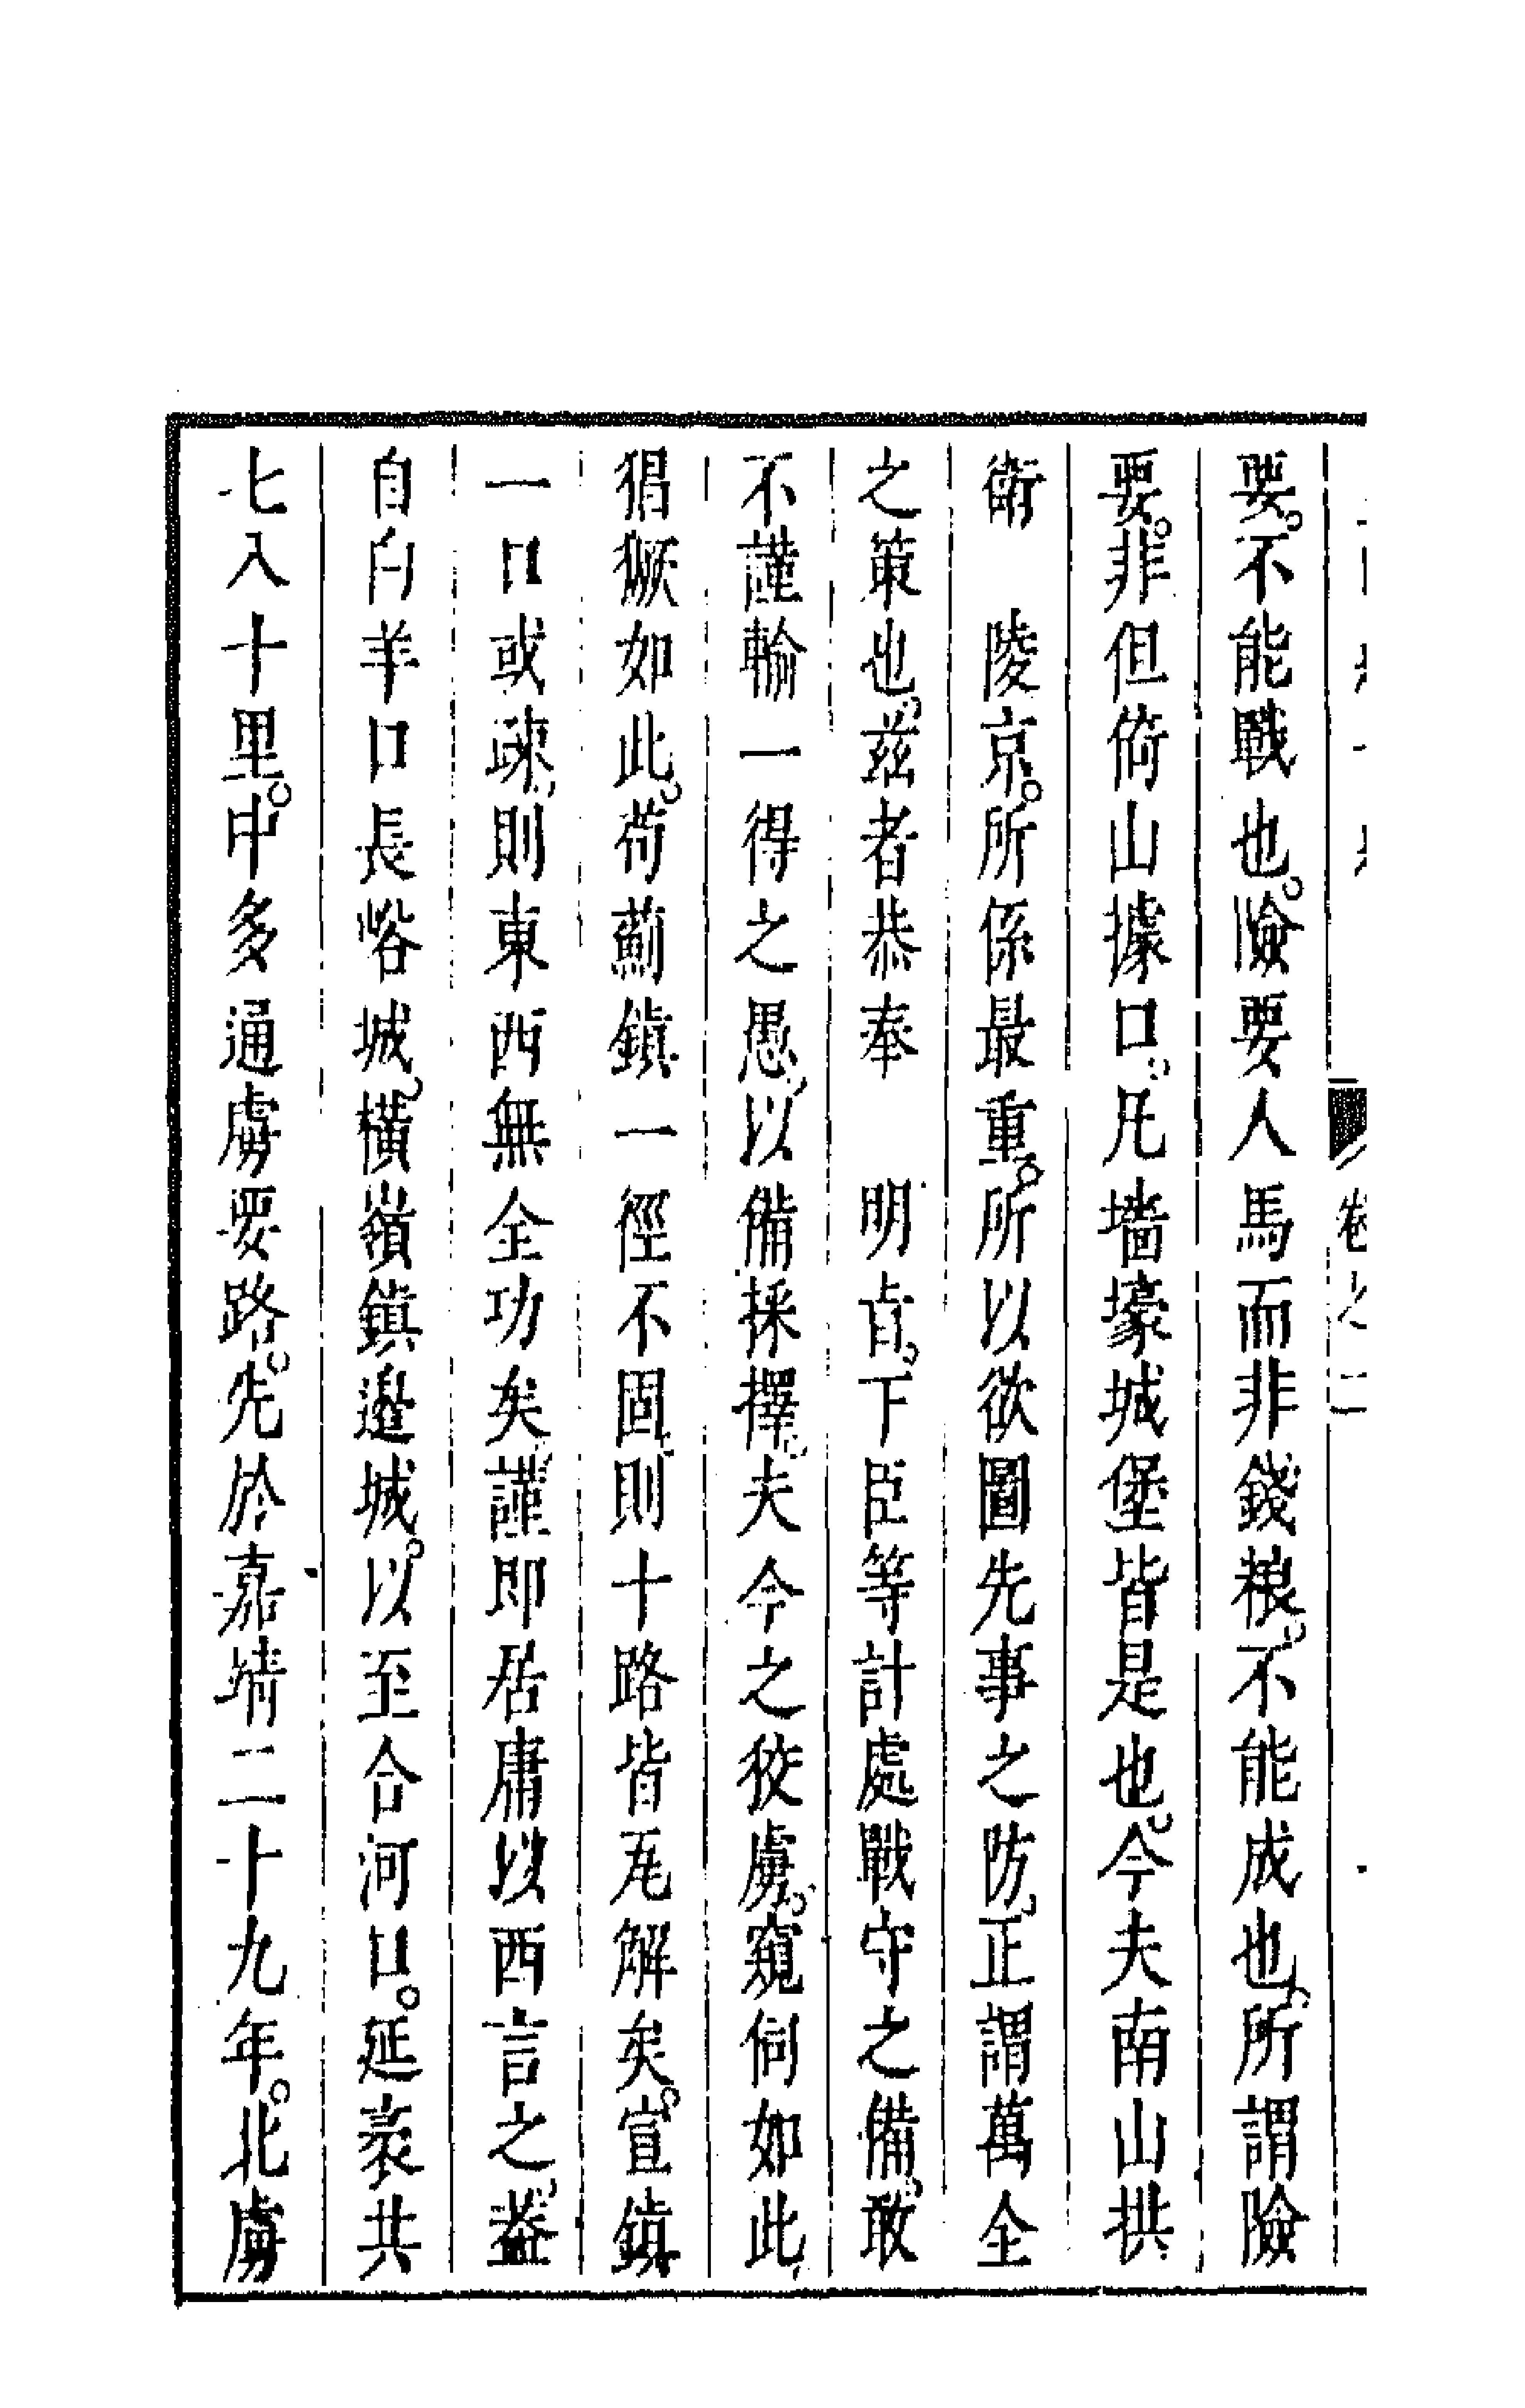 卷之二
要。不能戰也。險要人馬而非錢粮。不能成也。所謂險
要。非但倚山據口。凡墻壕城堡皆是也。今夫南山拱
衛　陵京。所係最重。所以欲圖先事之防。正謂萬全
之策也。茲者恭奉　明旨。下臣等計處戰守之備。敢
不謹輸一得之愚。以備採擇。夫今之狡虜。窺伺如此。
猖獗如此。苟薊鎮一徑不固。則十路皆瓦解矣。宣鎮
一口或疎。則東西無全功矣。謹即居庸以西言之。葢
自白羊口長峪城。橫嶺鎮邊城。以至合河口。延袤共
七八十里。中多通虜要路。先於嘉靖二十九年。北虜